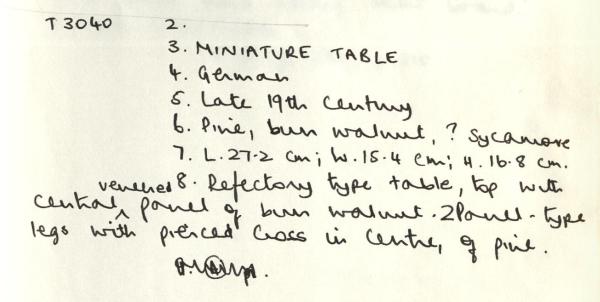 T3040 2.
3. MINIATURE TABLE
4. German
5. Late 19th Century
6. Pine, burr walnut, ? Sycamore
7. L.27.2 cm; W.15.4 cm; H.16.8 cm.
8. Refectory type table, top with
central veneered panel of burr walnut. 2 Panel-type
legs with pierced cross in centre, of pine.